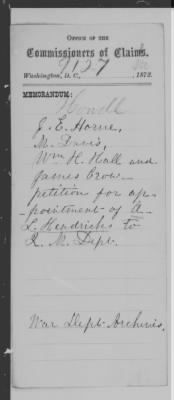 OFFICE OF THE
Commissioners of Claims,
9127
Washington, D. C., , 1872.
MEMORANDUM:
Howell
J. E. Horne,
M. Davis,
Wm H. Hall and
James Crow -
petition for ap-
-pointment of A.
L. Hendricks to
2. M. Dept.
War Dept Archives.